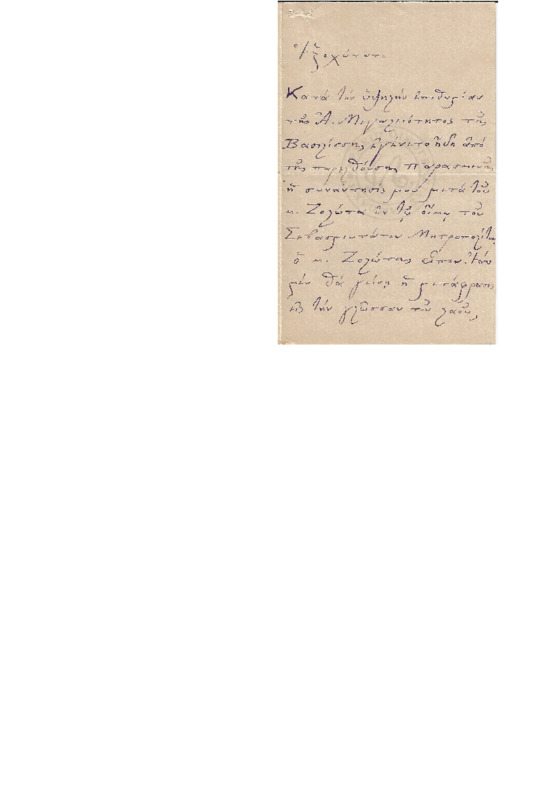 Ἐξοχώτατε
Κατὰ τὴν ὑψηλὴν ἐπιθυμίαν
τῆς Α. Μεγαλειότητος τῆς
Βασιλίσσης ἐγένετο ἤδη ἀπὸ
τῆς παρελθούσης Παρασκευῆς
ἡ συνάντησίς μου μετὰ τοῦ
κ. Ζολώτα ἐν τῷ οἴκῳ τοῦ
Σεβασμιωτάτου Μητροπολίτου
ὁ κ. Ζολώτας εἶπεν. Ἐὰν
μὲν θὰ γείνῃ ἡ μετάφρασις
εἰς τὴν γλῶσσαν τοῦ λαοῦ,